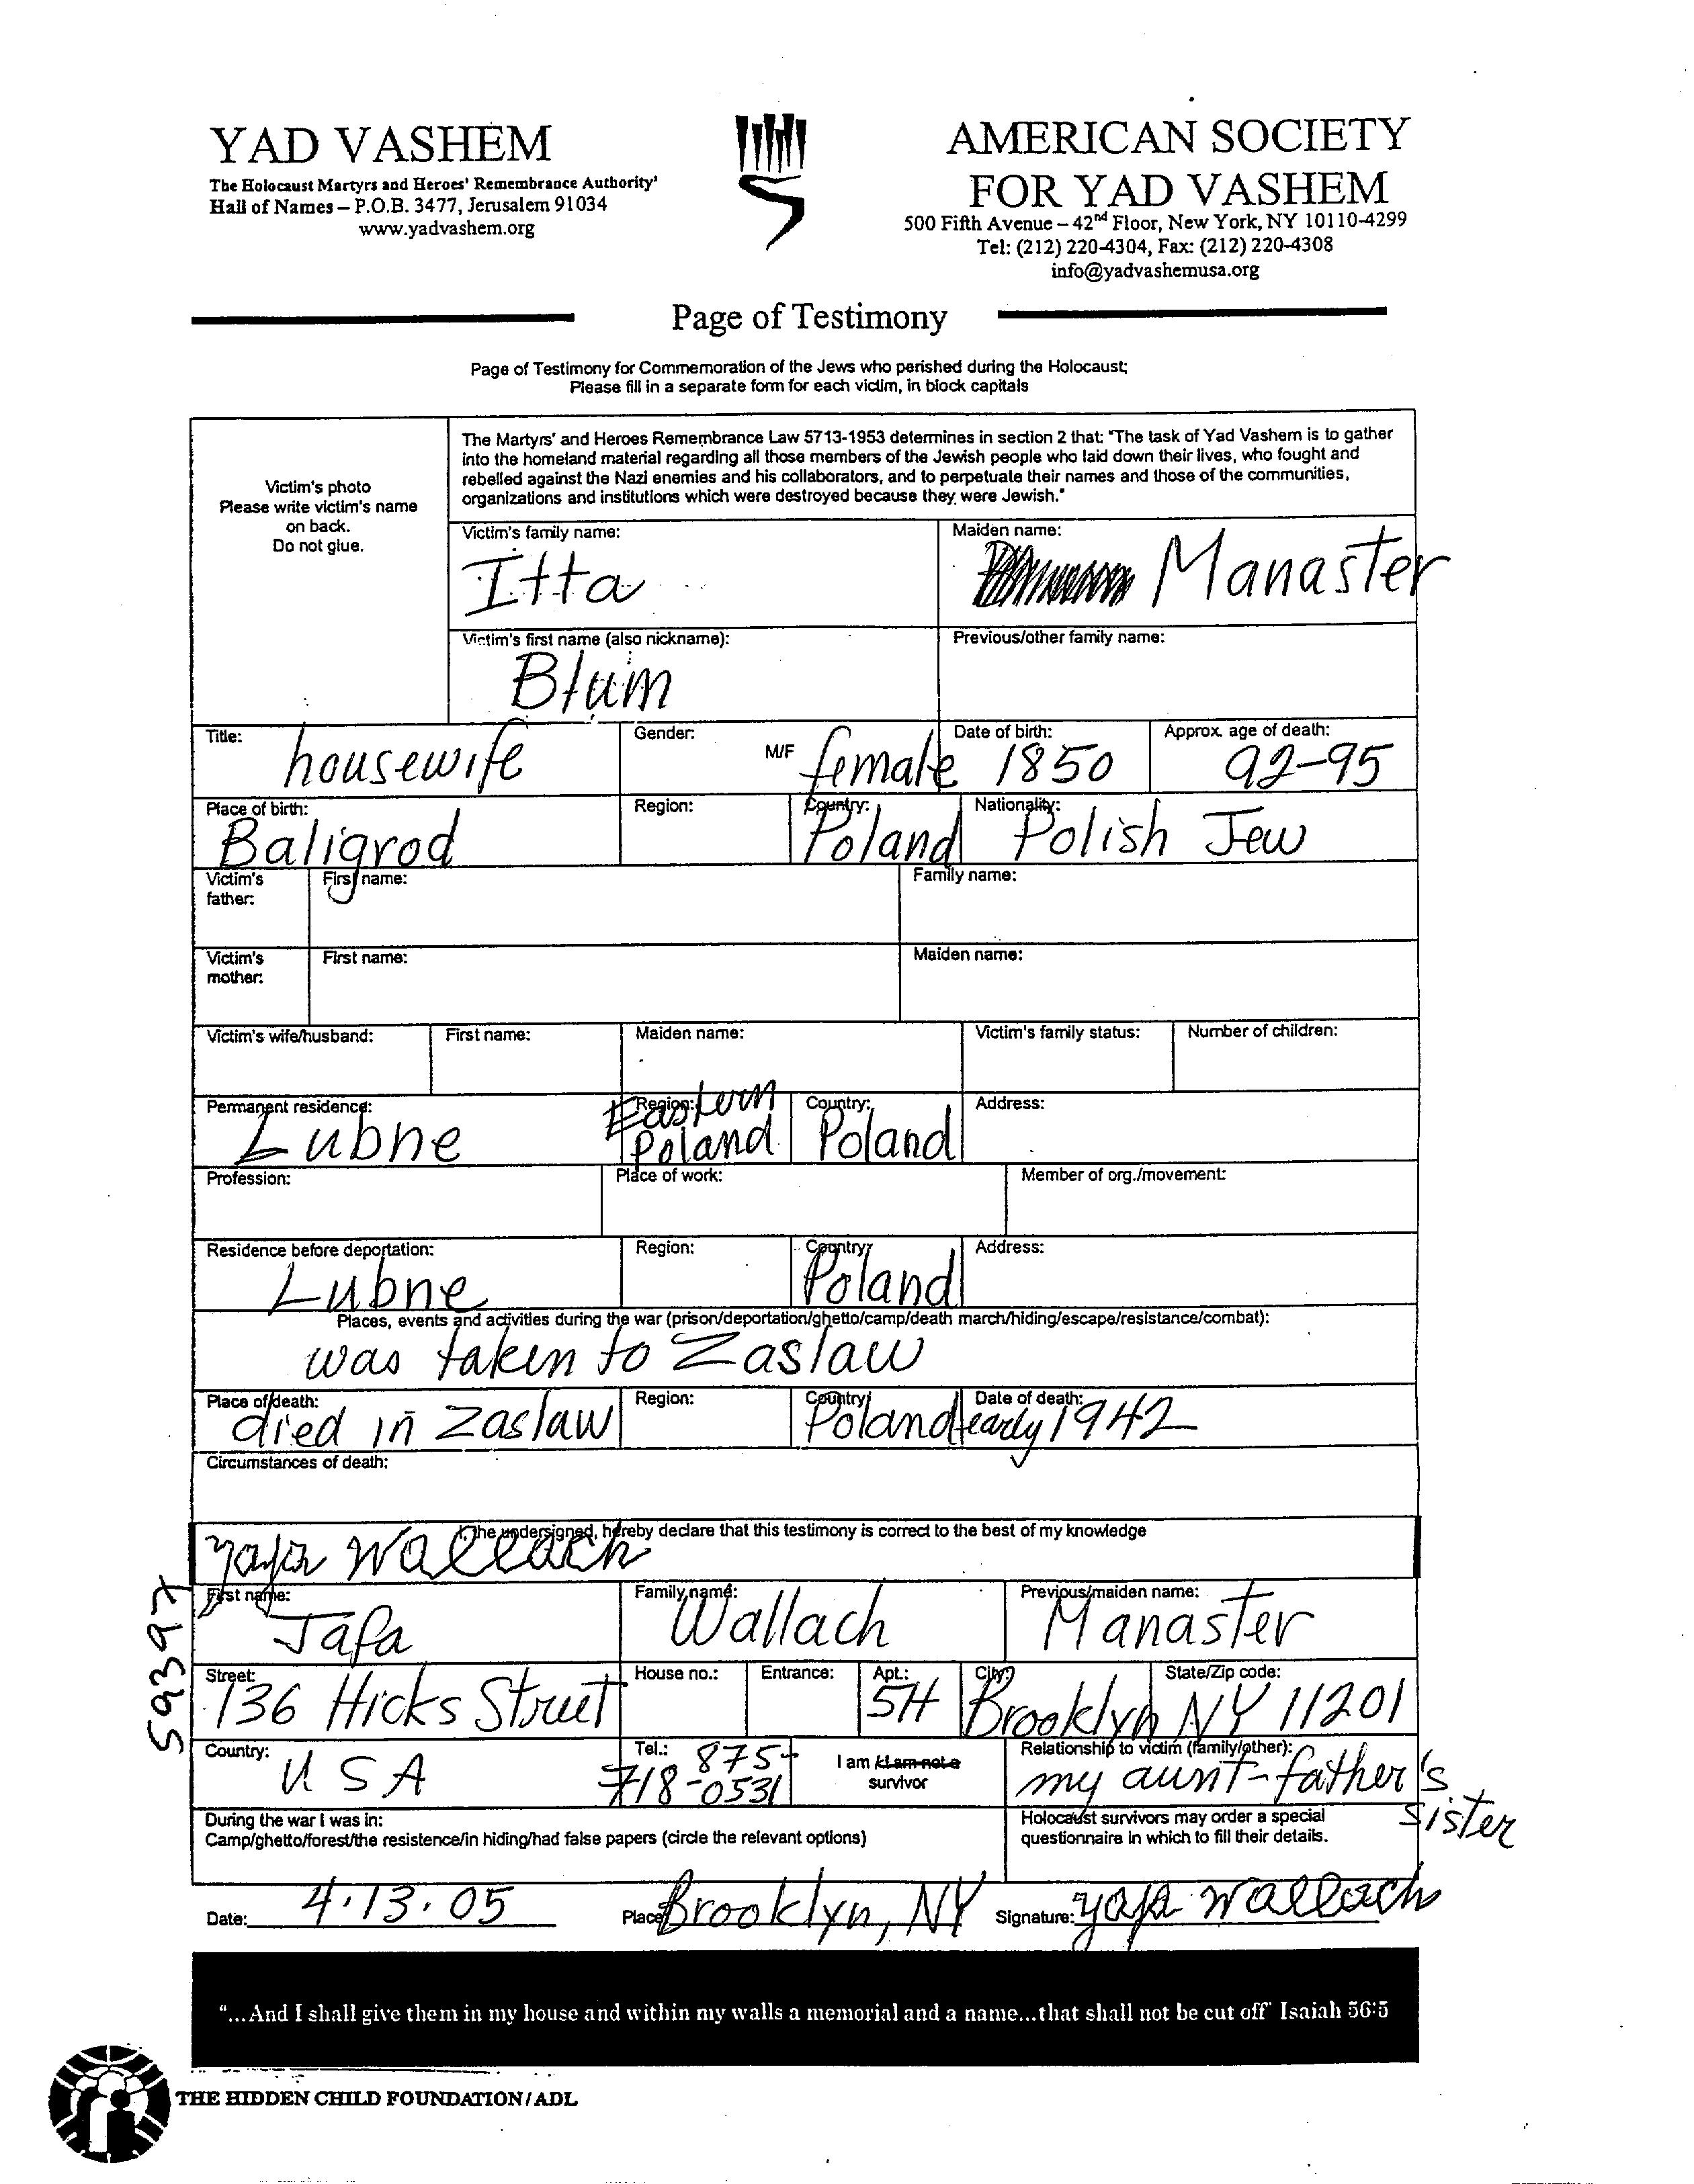 YAD VASHEM
The Holocaust Martyrs and Heroes' Remembrance Authority'
Hall of Names – P.O.B. 3477, Jerusalem 91034
www.yadvashem.org
AMERICAN SOCIETY
FOR YAD VASHEM
500 Fifth Avenue – 42nd Floor, New York, NY 10110-4299
Tel: (212) 220-4304, Fax: (212) 220-4308
info@yadvashemusa.org
Page of Testimony
Page of Testimony for Commemoration of the Jews who perished during the Holocaust;
Please fill in a separate form for each victim, in block capitals
Victim's photo
Please write victim's name
on back.
Do not glue.
The Martyrs' and Heroes Remembrance Law 5713-1953 determines in section 2 that: "The task of Yad Vashem is to gather
into the homeland material regarding all those members of the Jewish people who laid down their lives, who fought and
rebelled against the Nazi enemies and his collaborators, and to perpetuate their names and those of the communities,
organizations and institutions which were destroyed because they were Jewish."
Victim's family name: Maiden name:
Itta Manaster
Victim's first name (also nickname): Previous/other family name:
Blum
Title: Gender: Date of birth: Approx. age of death:
housewife M/F female 1850 92-95
Place of birth: Region: Country: Nationality:
Baligrod Poland Polish Jew
Victim's father: First name: Family name:
Victim's mother: First name: Maiden name:
Victim's wife/husband: First name: Maiden name: Victim's family status: Number of children:
Permanent residence: Region: Country: Address:
Lubne Eastern Poland Poland
Profession: Place of work: Member of org./movement:
Residence before deportation: Region: Country: Address:
Lubne Poland
Places, events and activities during the war (prison/deportation/ghetto/camp/death march/hiding/escape/resistance/combat):
was taken to Zaslaw
Place of death: Region: Country: Date of death:
died in Zaslaw Poland early 1942
Circumstances of death:
I, the undersigned, hereby declare that this testimony is correct to the best of my knowledge
yafa Wallach
First name: Family name: Previous/maiden name:
Jafa Wallach Manaster
Street: House no.: Entrance: Apt.: City: State/Zip code:
136 Hicks Street 5H Brooklyn NY 11201
Country: Tel.: I am /I am not a survivor Relationship to victim (family/other):
USA 718-875-0531 my aunt-father's sister
During the war I was in:
Camp/ghetto/forest/the resistence/in hiding/had false papers (circle the relevant options)
Holocaust survivors may order a special
questionnaire in which to fill their details.
Date: 4.13.05 Place: Brooklyn, NY Signature: yafa Wallach
59397
"...And I shall give them in my house and within my walls a memorial and a name...that shall not be cut off" Isaiah 56:5
THE HIDDEN CHILD FOUNDATION/ADL